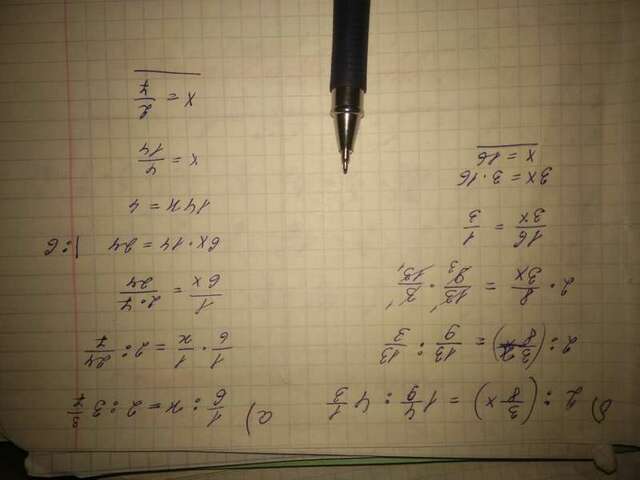 б) 2 : (3/8 x) = 1 4/9 : 4 1/3
2 : (3x/8) = 13/9 : 13/3
2 · 8/3x = 13/9 · 3/13
16/3x = 1/3
3x = 3 · 16
x = 16
a) 1/6 : x = 2 : 3 3/7
1/6 · 1/x = 2 : 24/7
1/6x = 2·7/24
6x · 14 = 24 |:6
14x = 4
x = 4/14
x = 2/7